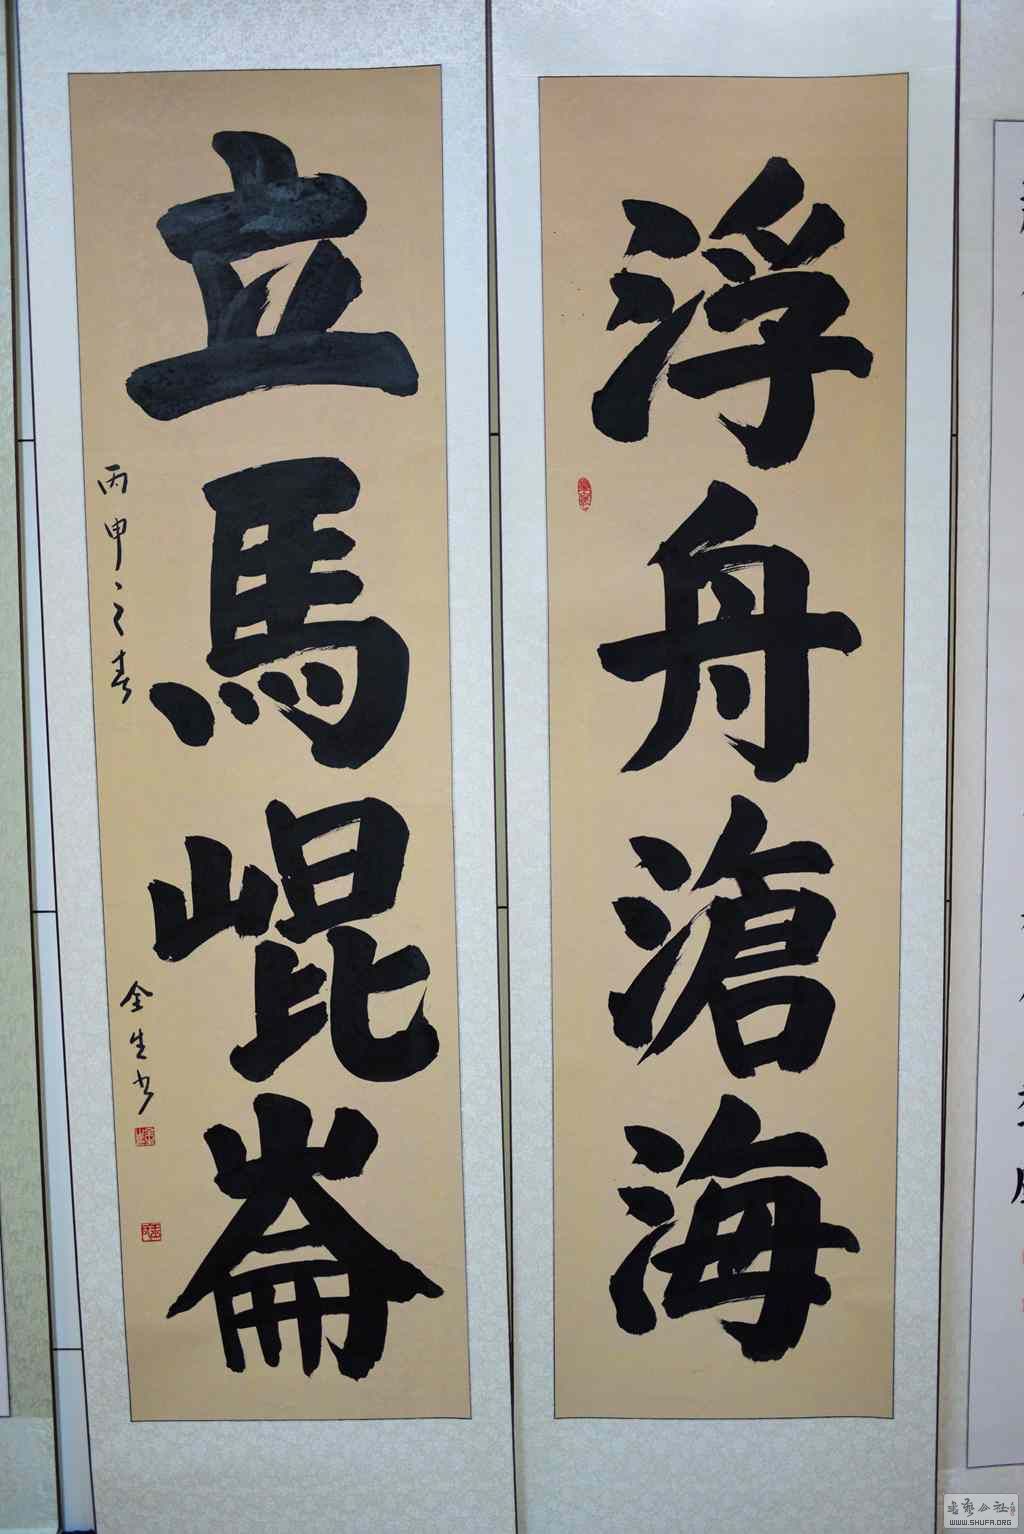 浮舟滄海
立馬崐崙
丙申之春
金生书
书艺公社
WWW.SHUFA.ORG